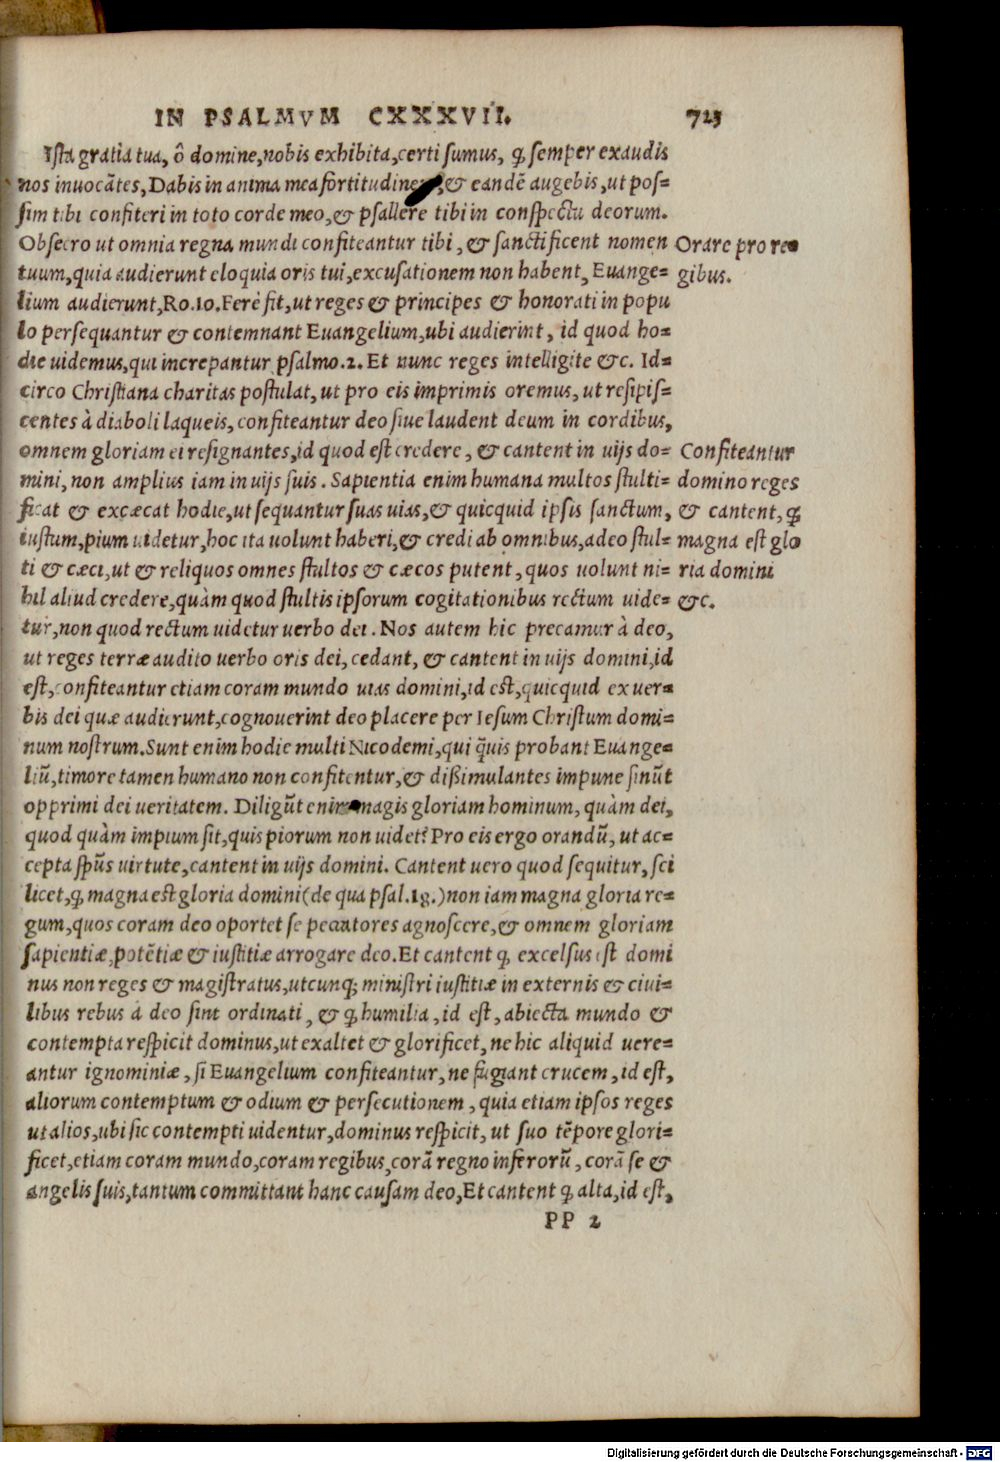 IN PSALMVM CXXXVII. 723
Ista gratia tua, ô domine, nobis exhibita, certi sumus, ꝙ semper exaudis
nos inuocātes, Dabis in anima mea fortitudinem, & eandē augebis, ut pos=
sim tibi confiteri in toto corde meo, & psallere tibi in conspectu deorum.
Obsecro ut omnia regna mundi confiteantur tibi, & sanctificent nomen
tuum, quia audierunt eloquia oris tui, excusationem non habent, Euange=
lium audierunt, Ro.10. Ferè fit, ut reges & principes & honorati in popu
lo persequantur & contemnant Euangelium, ubi audierint, id quod ho=
die uidemus, qui increpantur psalmo.2. Et nunc reges intelligite &c. Id=
circo Christiana charitas postulat, ut pro eis imprimis oremus, ut resipis=
centes à diaboli laqueis, confiteantur deo siue laudent deum in cordibus,
omnem gloriam ei resignantes, id quod est credere, & cantent in uijs do=
mini, non amplius iam in uijs suis. Sapientia enim humana multos stulti=
ficat & excæcat hodie, ut sequantur suas uias, & quicquid ipsis sanctum,
iustum, pium uidetur, hoc ita uolunt haberi, & credi ab omnibus, adeo stul=
ti & cæci, ut & reliquos omnes stultos & cæcos putent, quos uolunt ni=
hil aliud credere, quàm quod stultis ipsorum cogitationibus rectum uide=
tur, non quod rectum uidetur uerbo dei. Nos autem hic precamur à deo,
ut reges terræ audito uerbo oris dei, cedant, & cantent in uijs domini, id
est, confiteantur etiam coram mundo uias domini, id est, quicquid ex uer=
bis dei quæ audierunt, cognouerint deo placere per Iesum Christum domi=
num nostrum. Sunt enim hodie multi Nicodemi, qui q̄uis probant Euange=
liū, timore tamen humano non confitentur, & dißimulantes impune sinūt
opprimi dei ueritatem. Diligūt enim magis gloriam hominum, quàm dei,
quod quàm impium sit, quis piorum non uidet? Pro eis ergo orandū, ut ac=
cepta sp̄us uirtute, cantent in uijs domini. Cantent uero quod sequitur, sci
licet, ꝙ magna est gloria domini (de qua psal.18.) non iam magna gloria re=
gum, quos coram deo oportet se peccatores agnoscere, & omnem gloriam
sapientiæ, potētiæ & iustitiæ arrogare deo. Et cantent ꝙ excelsus est domi
nus non reges & magistratus, utcunq; ministri iustitiæ in externis & ciui=
libus rebus à deo sint ordinati, & ꝙ humilia, id est, abiecta mundo &
contempta respicit dominus, ut exaltet & glorificet, ne hic aliquid uere=
antur ignominiæ, si Euangelium confiteantur, ne fugiant crucem, id est,
aliorum contemptum & odium & persecutionem, quia etiam ipsos reges
ut alios, ubi sic contempti uidentur, dominus respicit, ut suo tēpore glori=
ficet, etiam coram mundo, coram regibus, corā regno inferorū, corā se &
angelis suis, tantum committant hanc causam deo, Et cantent ꝙ alta, id est,
PP 2
Orare pro re=
gibus.
Confiteantur
domino reges
& cantent, ꝙ
magna est glo
ria domini
&c.
Digitalisierung gefördert durch die Deutsche Forschungsgemeinschaft - DFG